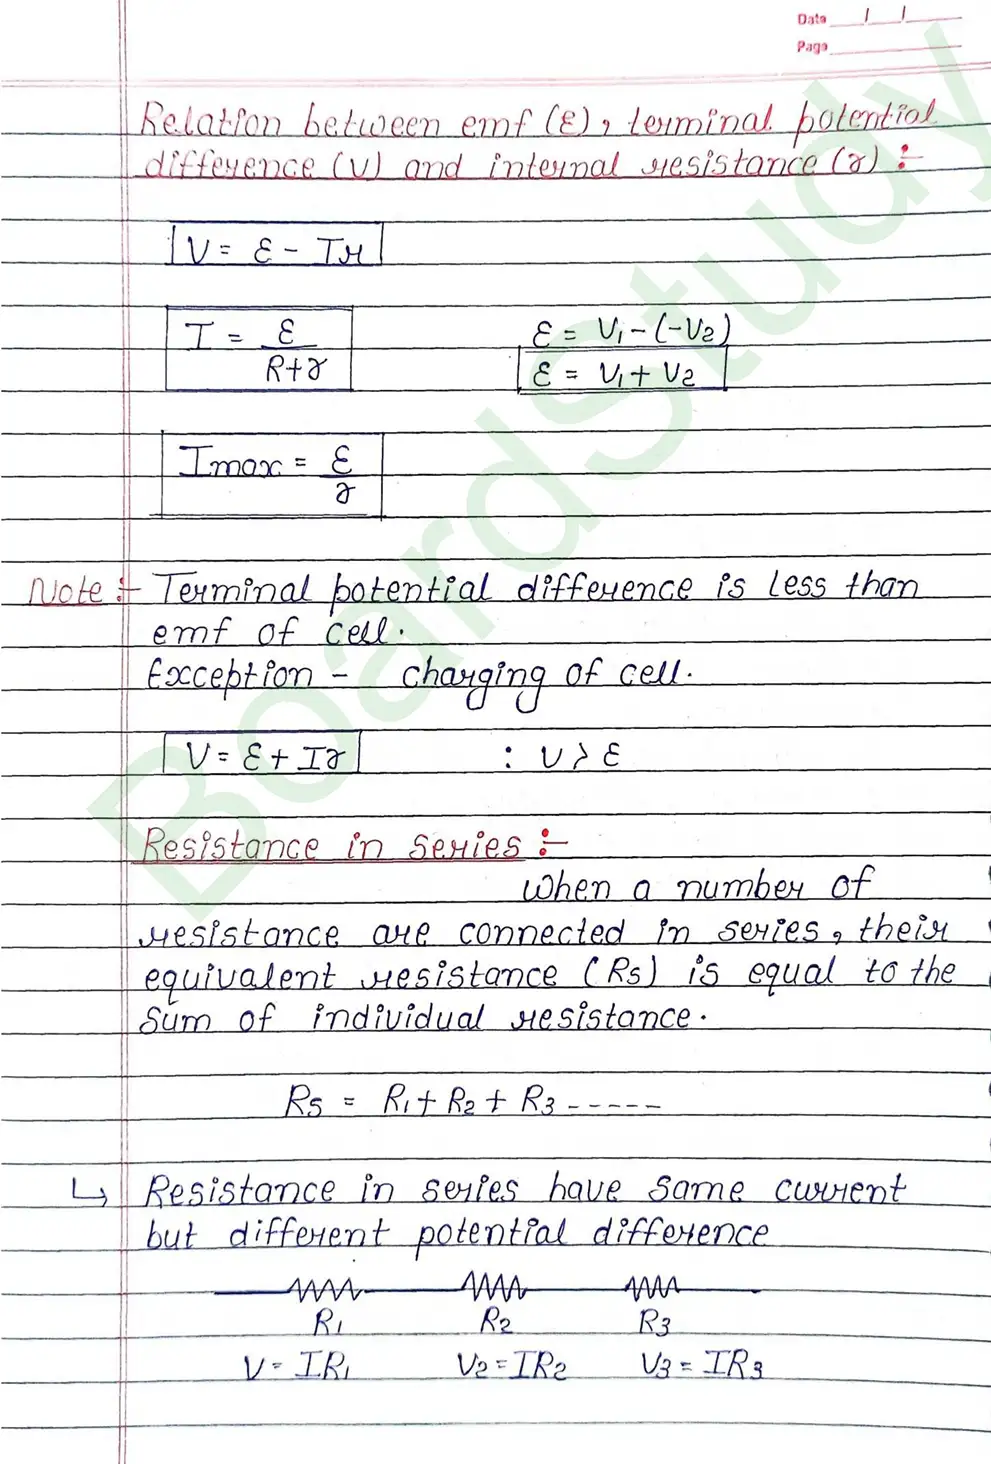 Date / /
Page
Relation between emf (ε), terminal potential
difference (V) and internal resistance (r) :-
V = ε - Ir
I = ε / R+r
ε = V1 - (-V2)
ε = V1 + V2
Imax = ε / r
Note :- Terminal potential difference is less than
emf of cell.
Exception - charging of cell.
V = ε + Ir : V > ε
Resistance in series :-
When a number of
resistance are connected in series, their
equivalent resistance (Rs) is equal to the
sum of individual resistance.
Rs = R1 + R2 + R3 -----
↳ Resistance in series have same current
but different potential difference
R1 R2 R3
V = IR1 V2 = IR2 V3 = IR3
BoardStudy